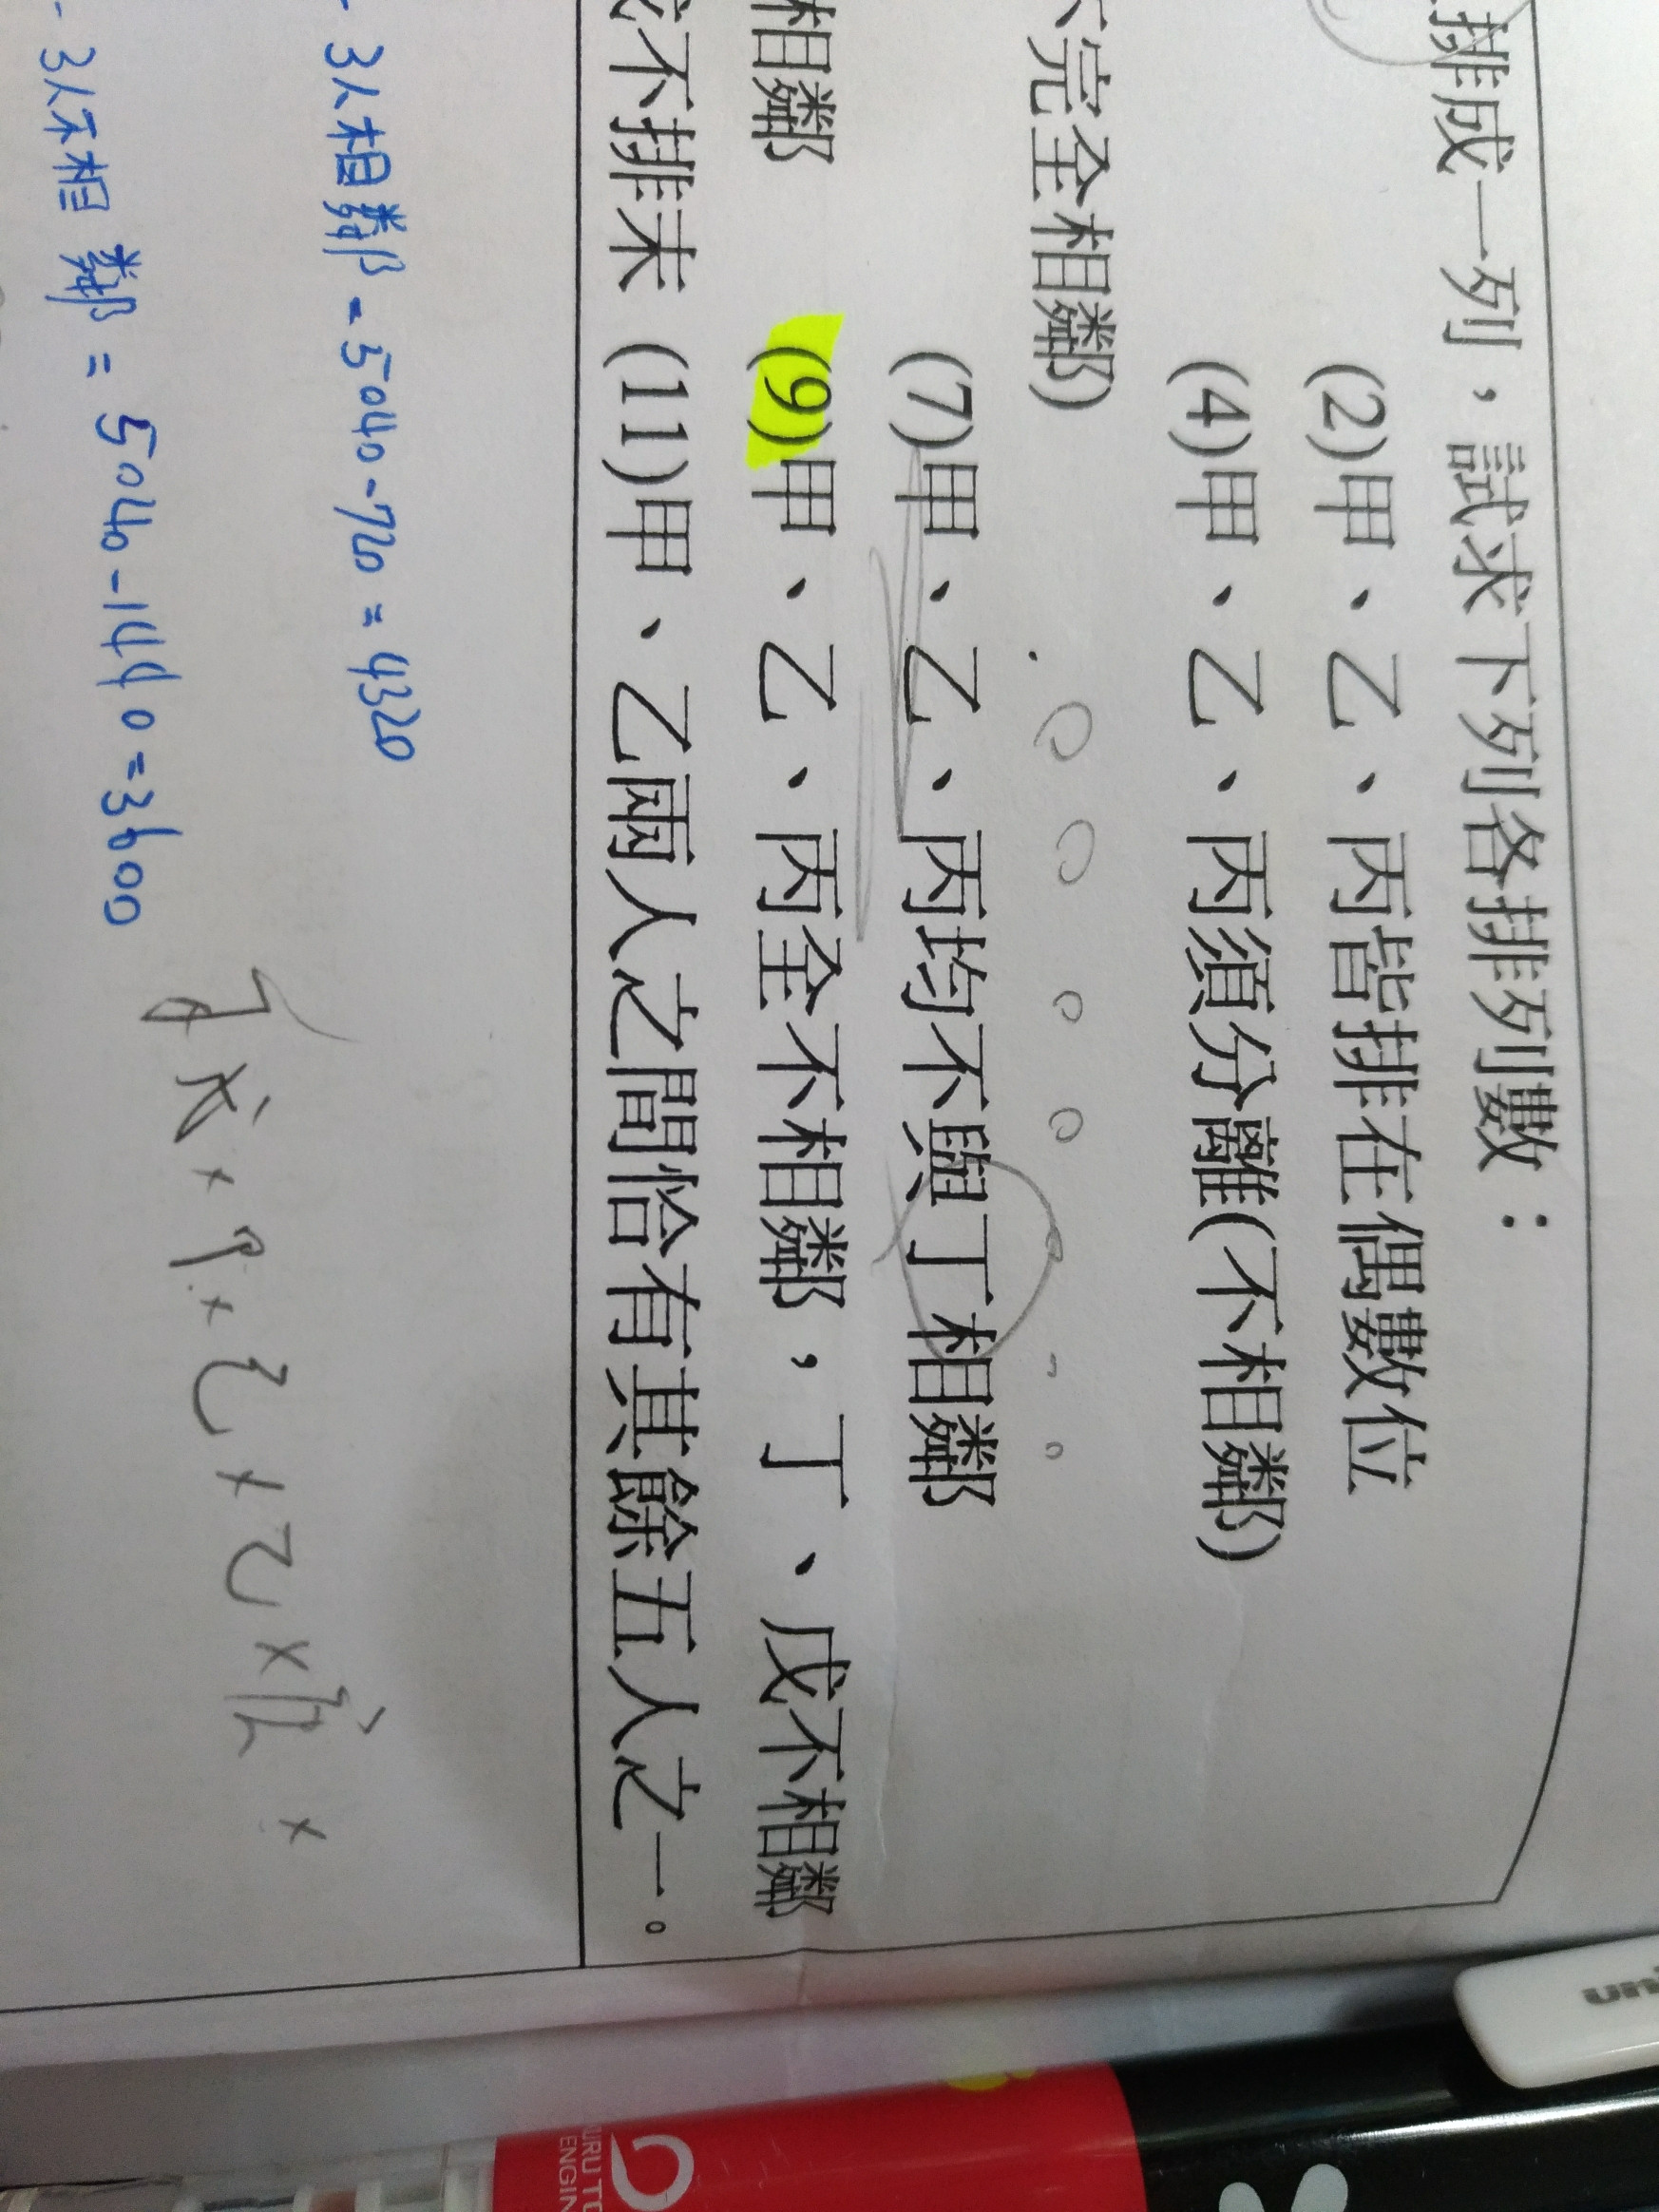 排成一列，試求下列各排列數：
(2)甲、乙、丙皆排在偶數位
(4)甲、乙、丙須分離(不相鄰)
不完全相鄰)
(7)甲、乙、丙均不與丁相鄰
相鄰 (9)甲、乙、丙全不相鄰，丁、戊不相鄰
不排末 (11)甲、乙兩人之間恰有其餘五人之一。
- 3人相鄰 = 5040-720 = 4320
- 3人不相鄰 = 5040-1440=3600
uni
URU TO
ENGIN